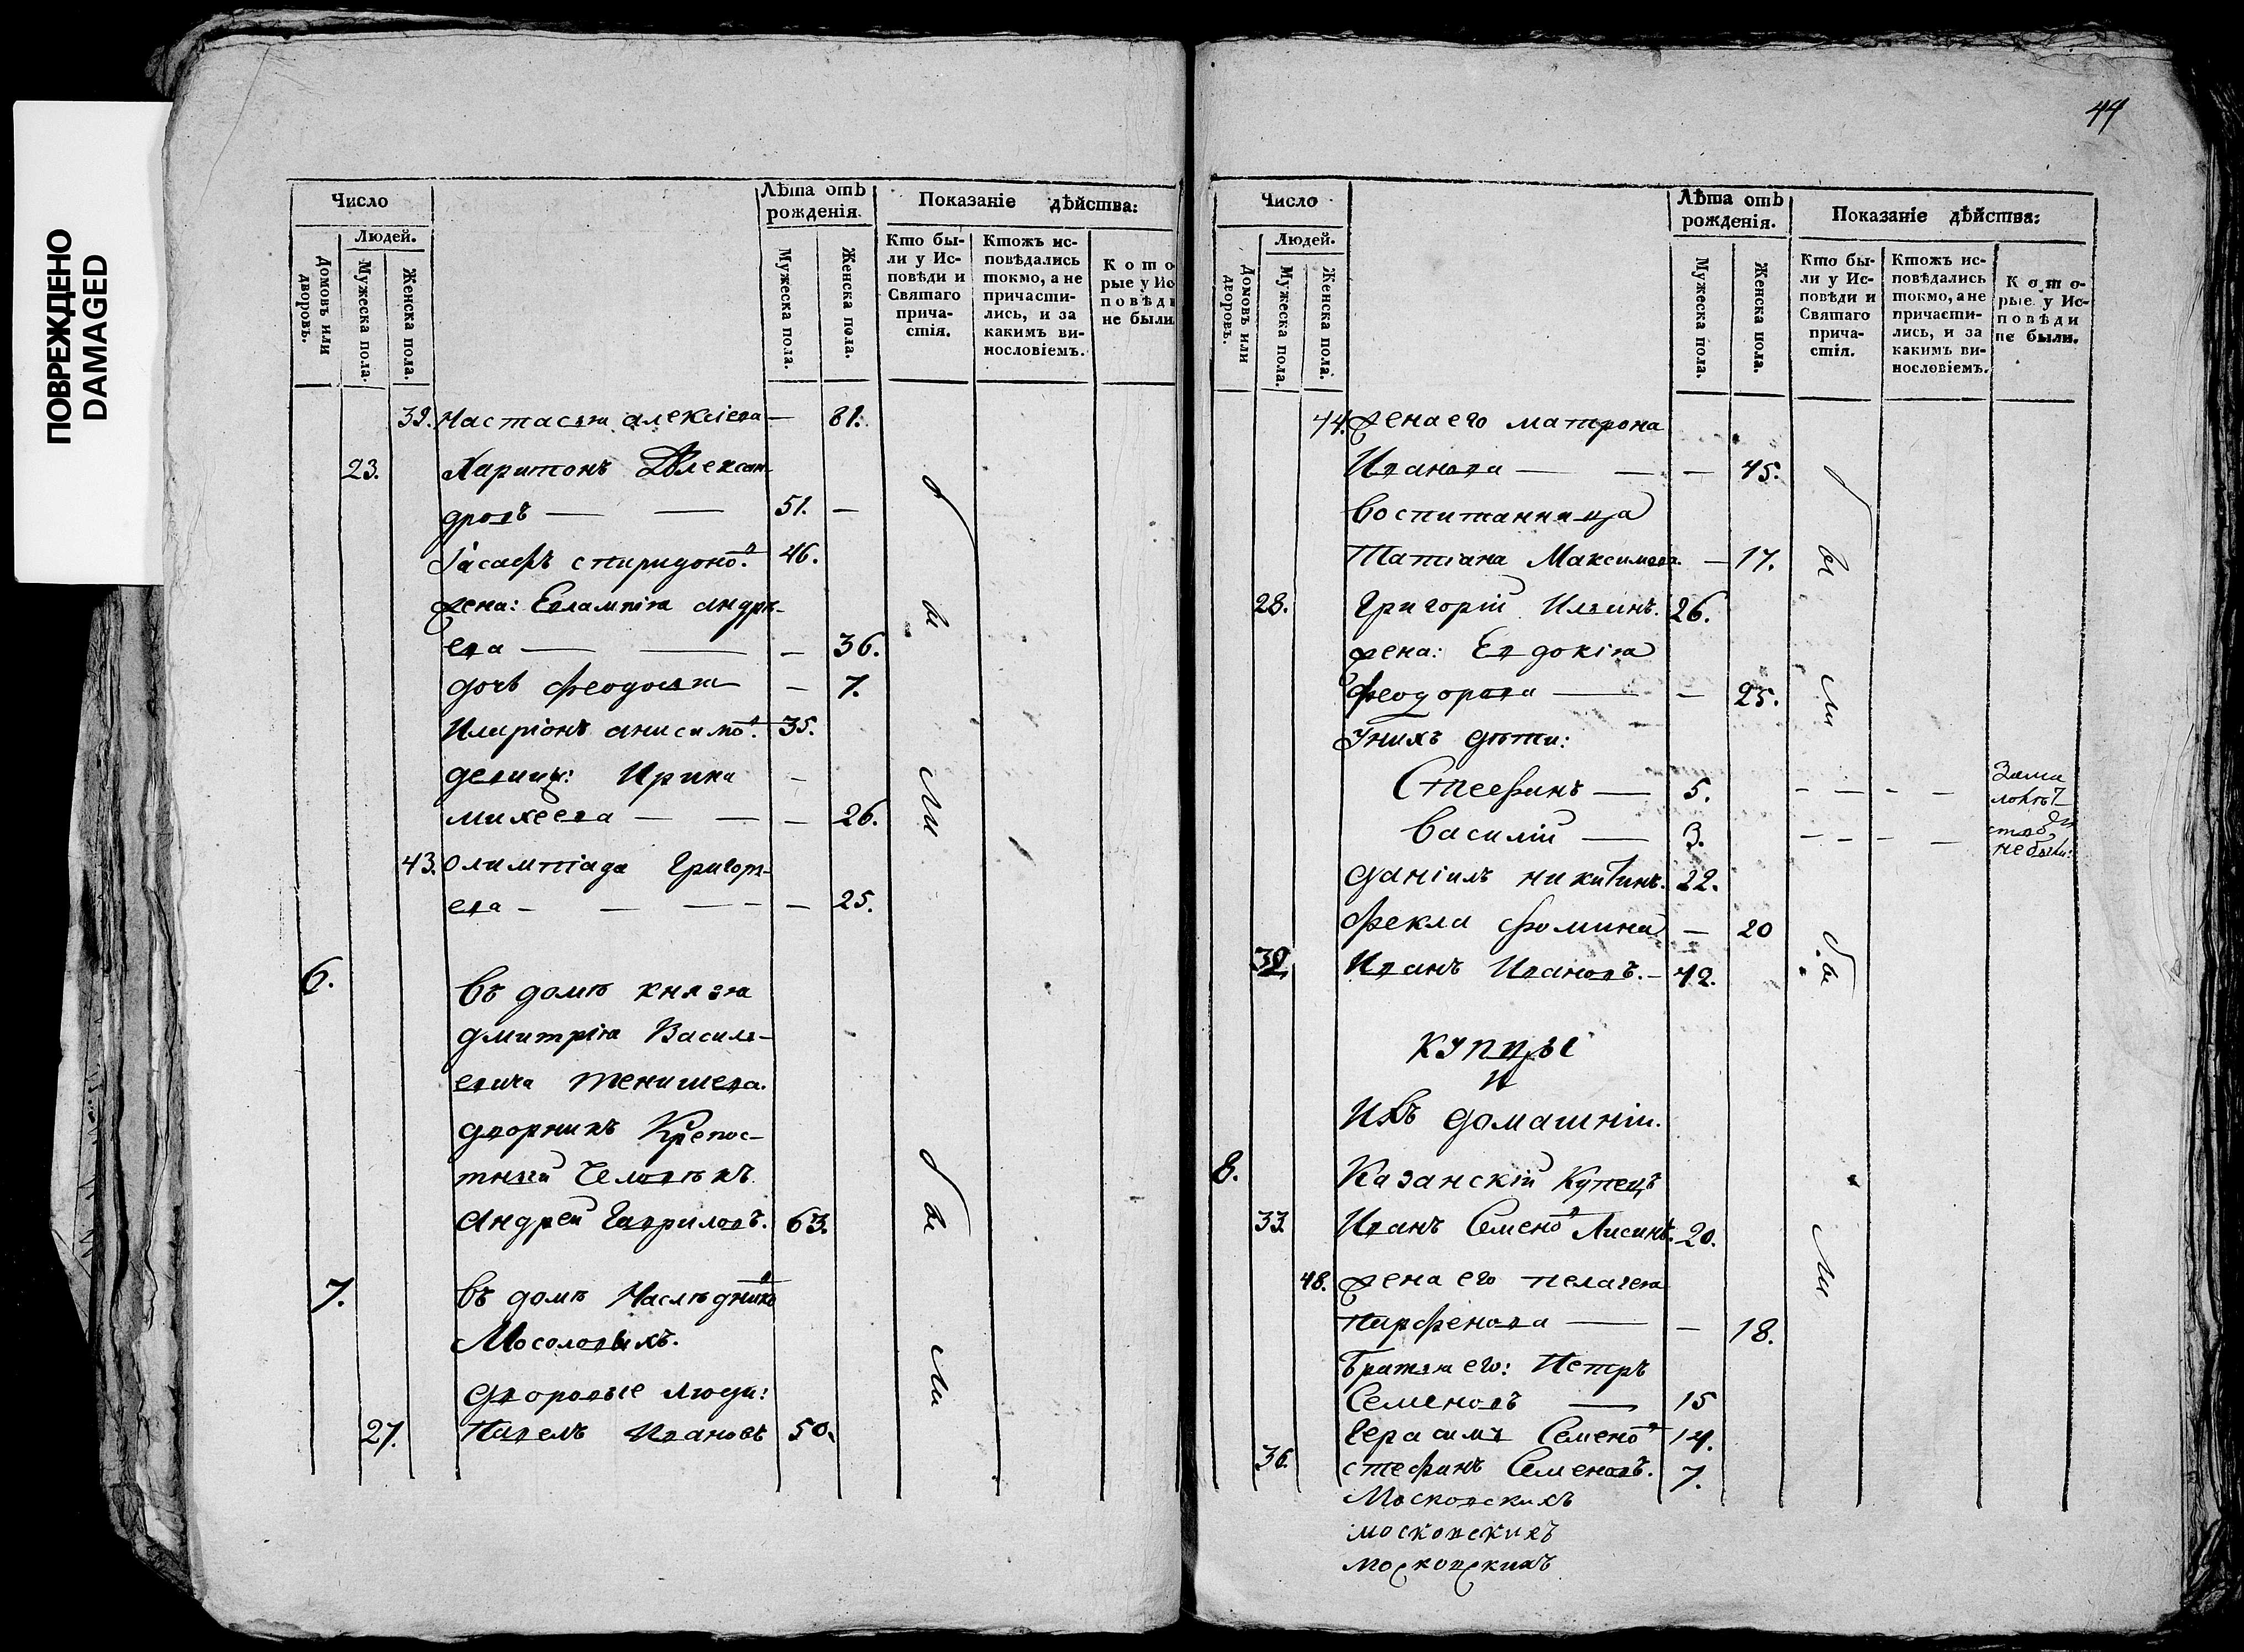 ПОВРЕЖДЕНО
DAMAGED
Число
Лѣта отъ рожденія.
Показаніе дѣйства:
Людей.
Домовъ или дворовъ.
Мужеска пола.
Женска пола.
Мужеска пола.
Женска пола.
Кто бы-
ли у Ис-
повѣди и
Святаго
прича-
стія.
Ктожъ ис-
повѣдались
токмо, а не
причасти-
лись, и за
какимъ ви-
нословіемъ.
Кото
рые у Ис
повѣди
не были
39. Настасья алексіева — 81.
23. Харитонъ Алексан-
дровъ — — 51. —
Іасафъ спиридоно.в 46.
жена: Евлампія андре-
ева — — — 36.
дочь феодосья — 7.
Иларіонъ анисимо.в 35.
девицы: Ирина —
михеева — — — 26.
43. Олимпіада Григорь-
ева — — — — — 25.
бы
ли
6. Въ домѣ князя
дмитрія Василь-
евича тенишева.
дворникъ Крепос-
тный Человѣкъ
Андрей Гавриловъ. 63.
7. Въ домѣ Наслѣднико в
Мосоловыхъ.
дворовые люди:
27. Павелъ Ивановъ 50.
бы
ли
44
Число
Лѣта отъ рожденія.
Показаніе дѣйства:
Людей.
Домовъ или дворовъ.
Мужеска пола.
Женска пола.
Мужеска пола.
Женска пола.
Кто бы-
ли у Ис-
повѣди и
Святаго
прича-
стія.
Ктожъ ис-
повѣдались
токмо, а не
причасти-
лись, и за
какимъ ви-
нословіемъ.
Кото-
рые у Ис-
повѣди
не были.
44. жена его матрона
Иванова — — — 45.
воспитанница
татіана Максимова. — 17.
28. Григорій Ильинъ. 26.
жена: Евдокія
феодорова — — 25.
У нихъ дѣти:
Стефанъ — 5. — — — —
Василій — 3. — — — —
За ма
лолѣт
ств
не были:
Даніилъ никитинъ. 22.
Фекла фомина — 20
32. Иванъ Ивановъ. — 42.
бы
ли
купцы
и
Ихъ домашніи.
8. Казанскій Купецъ
33. Иванъ Семено в Лисинъ. 20.
48. жена его пелагея
парфенова — — 18.
Братья его: Петръ
Семеновъ — 15
Герасимъ Семено в 14.
36. стефанъ Семеновъ. 7.
бы
ли
Московскихъ
московскихъ
московскихъ